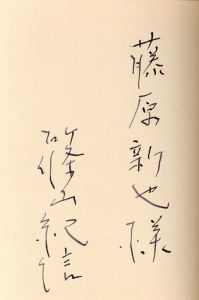 藤原新也様
篠山紀信